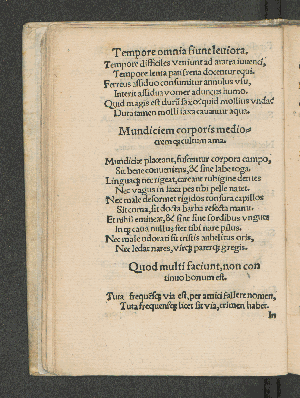 Tempore omnia fiunt leuiora,
Tempore difficiles veniunt ad aratra iuuenci,
Tempore lenta pati frena docentur equi.
Ferreus assiduo consumitur annulus vsu,
Interit assidua vomer aduncus humo.
Quid magis est durū saxo: quid mollius vndaς
Dura tamen molli saxa cauantur aqua.
Mundiciem corporis medio-
crem &cultum ama.
Mundiciæ placeant, fuscentur corpora campo,
Sit bene conueniens, & sine labe toga.
Linguaq; ne rigeat, careant rubigine dentes
Nec vagus in laxa pes tibi pelle natet.
Nec male deformet rigidos tonsura capillos
Sit coma, sit docta barba resecta manu.
Et nihil emineat, & sint sine sordibus vngues
Inq; caua nullus stet tibi nare pilus.
Nec male odorati sit tristis anhelitus oris,
Nec ledat nares, virq; paterq; gregis.
Quod multi faciunt, non con
tinuo bonum est.
Tuta frequēsq; via est, per amici fallere nomen,
Tuta frequensq; licet sit via, crimen habet.
In